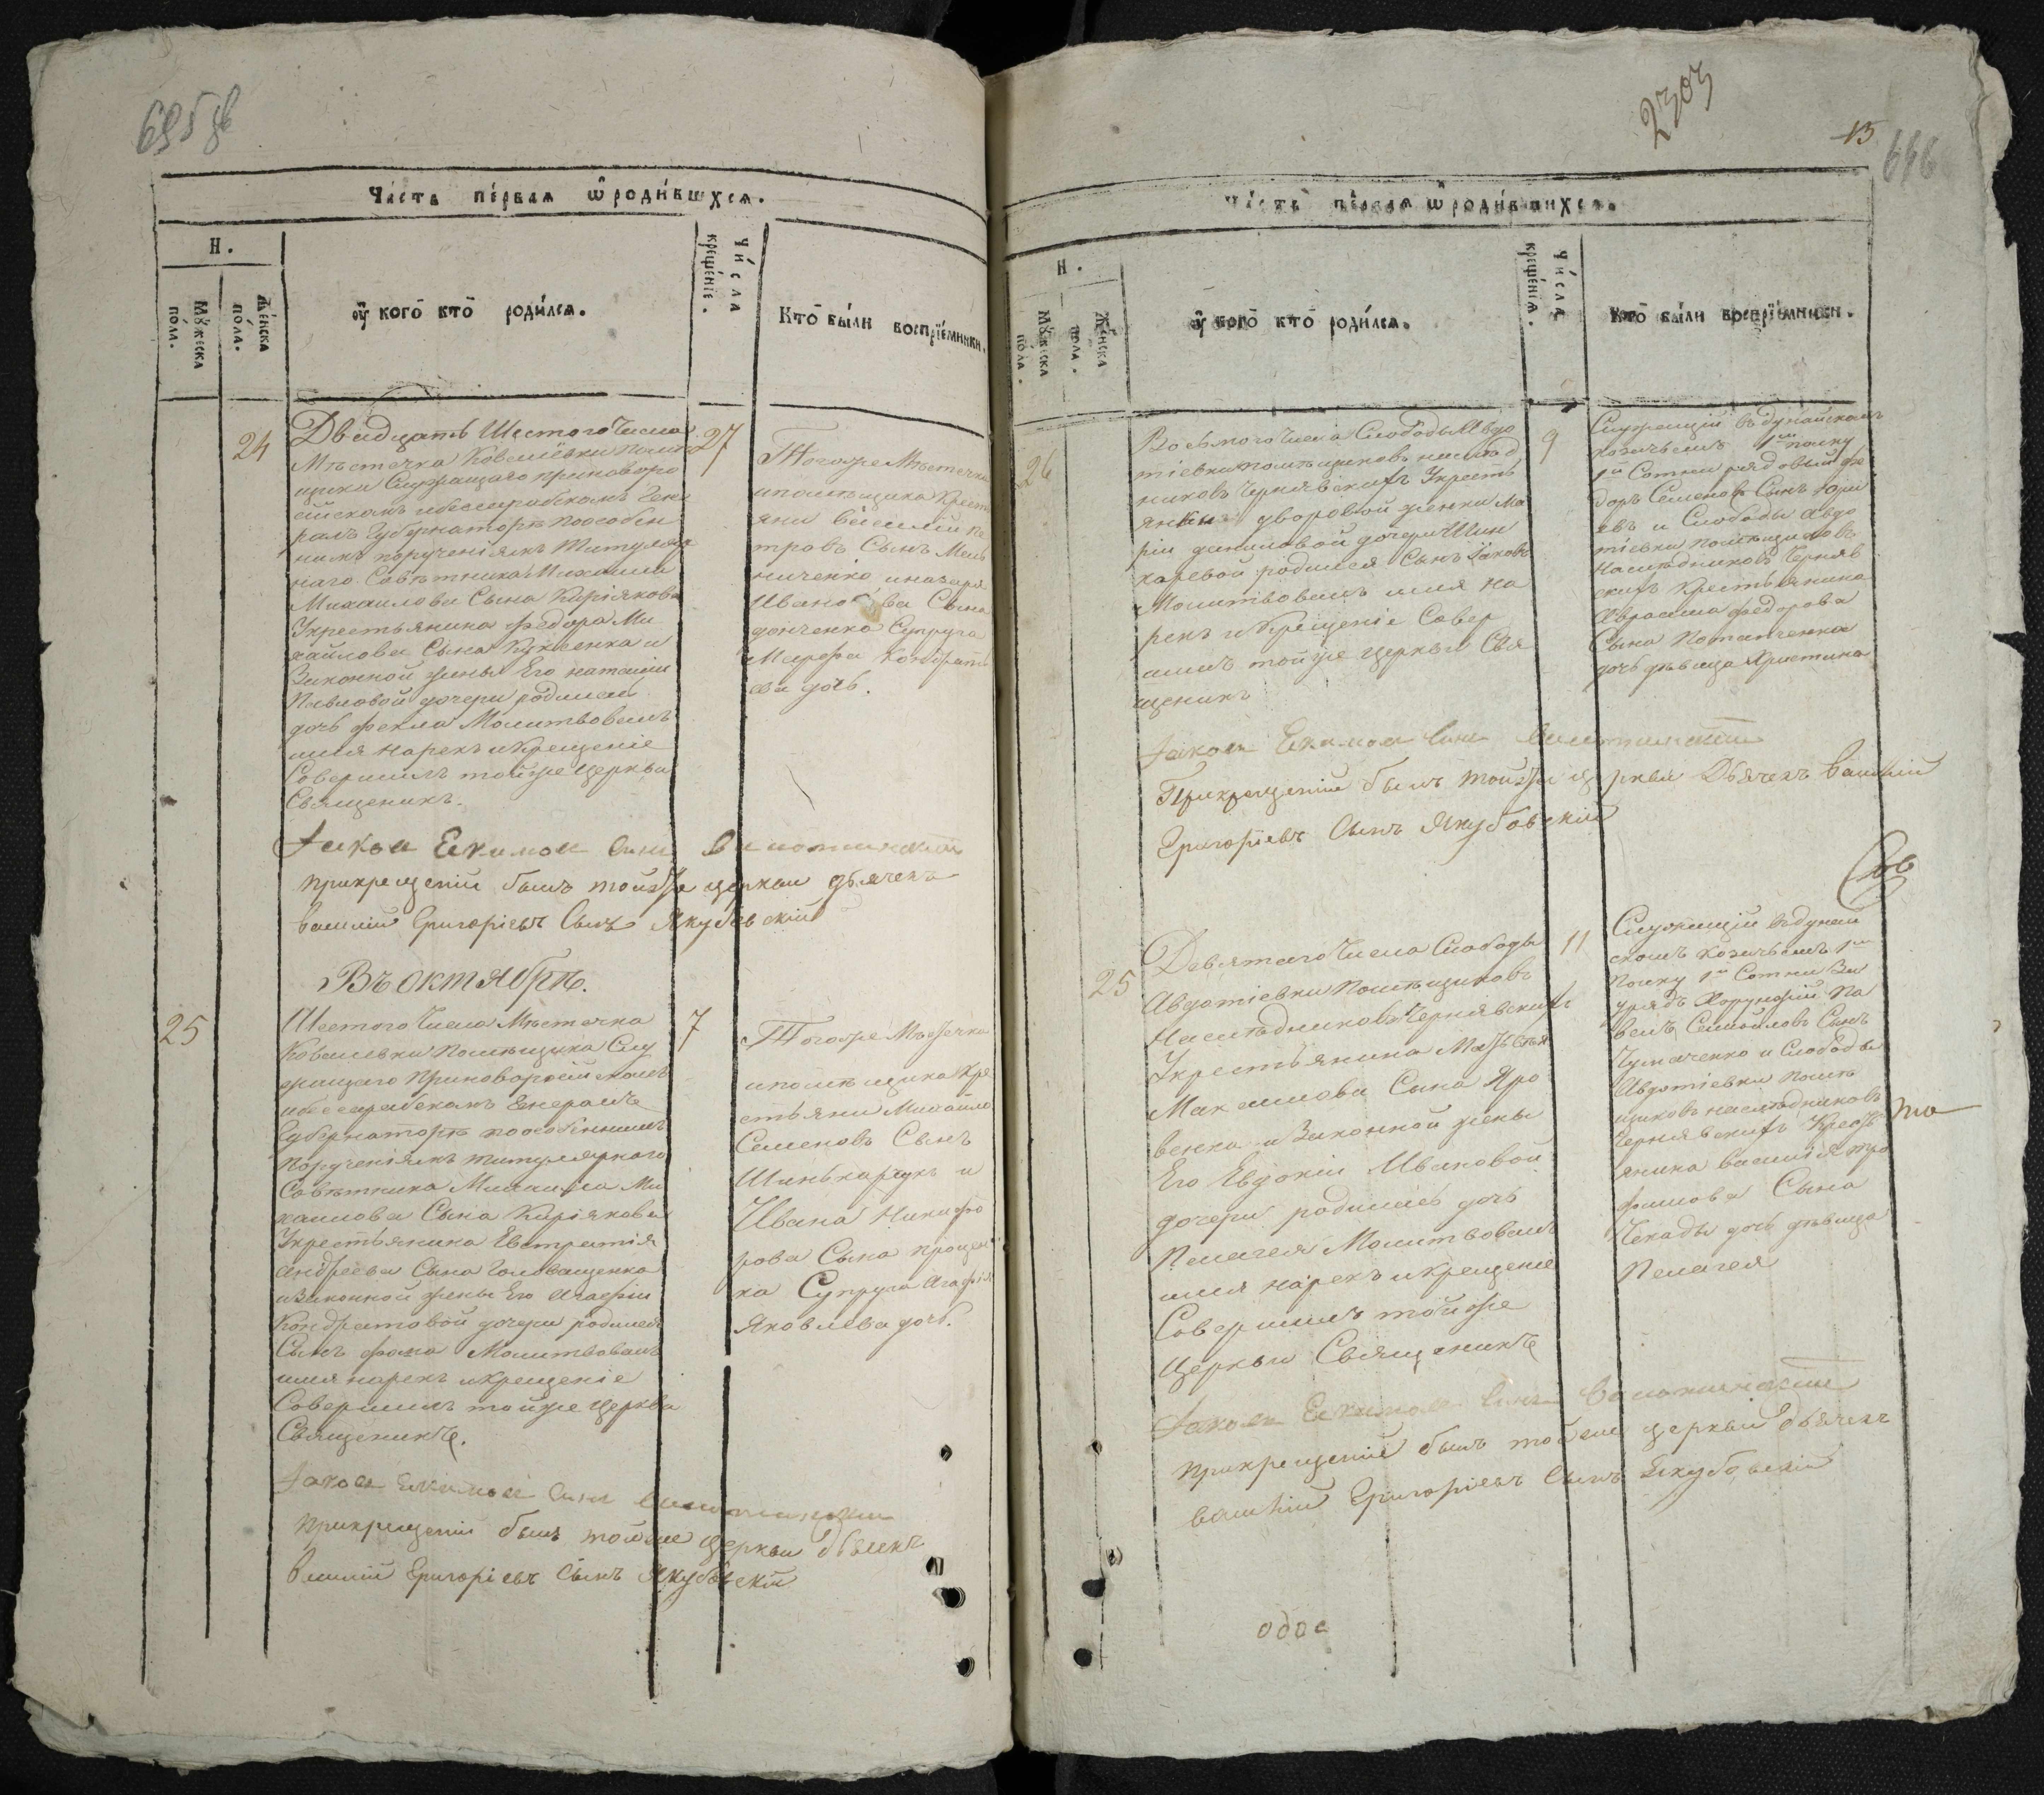 Ча́сть пе́рвая ѡ҆ роди́вшихсѧ.
Н.
Мꙋжеска по́ла.
Же́нска по́ла.
ᲂу҆ кого̀ кто̀ роди́лсѧ.
Чи́сла креще́нїѧ.
Кто̀ бы́ли воспрїе́мники.
24
Двадцать Шестого Числа
Местечка Ковалевки помѣ
щика Служащаго приноворо
сійскомъ ибессарабскомъ Гене
ралъ Губернаторѣ поособен
нымъ порученіямъ Титуляр
наго Совѣтника Михаила
Михаилова Сына Киріякова
Укрестьянина Федора Ми
хайлова Сына
Законной жены Его наталіи
Павловой дочери родилась
дочь фекла Молитвовалъ
имя нарекъ икрещеніе
Совершилъ тойже Церкви
Священикъ.
27
Тогоже Местечка
ипомѣщика Крест
яни Василій Пе
тровъ Сынъ Мель
ниченко
Иванова Сына
донченка Супруга
Марфа Кондрать
ева дочь.
Іаков Екимов Син
прикрещеніи былъ тойже церкви дьячекъ
василій Григоріевъ Сынъ Якубовскій
Въ октябрѣ.
25
Шестого Числа Местечка
Ковалевки Помѣщика Слу
жащаго Приноворосійскомъ
ибессарабскомъ Генералъ
Губернаторѣ поособеннымъ
порученіямъ титулярнаго
Совѣтника Михаила Ми
хаилова Сына Киріякова
Укрестьянина Евстратія
андреева Сына Головащенка
изаконной жены Его Агафіи
Кондратовой дочери родился
Сынъ фома Молитвовалъ
имя нарекъ икрещеніе
Совершилъ тойже Церкви
Священикъ.
7
Тогоже Местечка
ипомѣщика Кре
стьяни Михайло
Семеновъ Сынъ
Шинькарукъ и
Ивана Никифо
рова Сына Процен
ка Супруга Агафія
Яковлева дочь.
Іаков Екимов Син
прикрещеніи былъ тойже церкви дьячекъ
василій Григоріевъ Сынъ Якубовскій
15
Ча́сть пе́рвая ѡ҆ роди́вшихсѧ.
Н.
Мꙋжеска по́ла.
Же́нска по́ла.
ᲂу҆ кого̀ кто̀ роди́лсѧ.
Чи́сла креще́нїѧ.
Кто̀ бы́ли воспрїе́мники.
26
Восьмого Числа Слободы Авдо
тіевки помѣщиковъ наслѣд
никовъ Чернявскихъ Укресть
янки дворовой женки Ма
ріи даниловой дочери Шин
каревой родился Сынъ Іаковъ
Молитвовалъ имя на
рекъ икрещеніе Совер
шилъ тойже церкви Свя
щеникъ
9
Служащій вдунайскомъ
козачьемъ 1м полку
1й Сотни рядовый фе
доръ Семеновъ Сынъ Юри
евъ и Слободы Авдо
тіевки помѣщиковъ
Наслѣдниковъ Черняв
скихъ Крестьянина
Аврама Федорова
Сына Потапченка
дочь дѣвица Христина
Іаков Екимов Син
Прикрещеніи былъ тойже церкви Дьячекъ василій
Григоріевъ Сынъ Якубовскій
25
Девятого Числа Слободы
Авдотіевки Помѣщиковъ
Наслѣдниковъ Чернявскихъ
Укрестьянина
Максимова Сына Яро
венка изаконной жены
Его Евдокіи Ивановой
дочери родилась дочь
Пелагея Молитвовалъ
имя нарекъ икрещеніе
Совершилъ тойже
Церкви Священикъ
11
Служащій вдунай
скомъ козачьемъ 1м
полку 1й Сотни За
урядъ Хорунжій Па
велъ Самойловъ Сынъ
Чумаченко и Слободы
Авдотіевки помѣ
щиковъ наслѣдниковъ
Чернявскихъ Кресть
янина василія Тро
фимова Сына
Чекады дочь дѣвица
Пелагея
Іаков Екимов Син
прикрещеніи былъ тойже церкви дьячекъ
василій Григоріевъ Сынъ Якубовскій